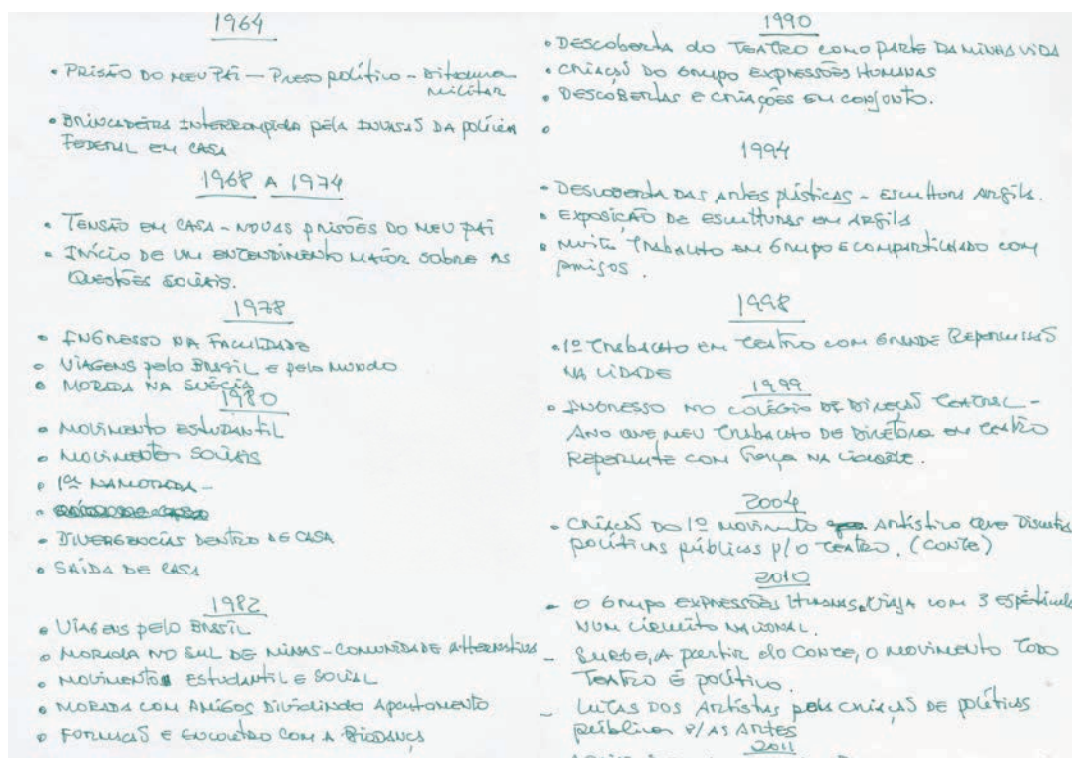 1964
• PRISÃO DO MEU PAI — PRESO POLÍTICO - DITADURA
MILITAR
• BRINCADEIRA INTERROMPIDA PELA INVASÃO DA POLÍCIA
FEDERAL EM CASA
1968 A 1974
• TENSÃO EM CASA - NOVAS PRISÕES DO MEU PAI
• INÍCIO DE UM ENTENDIMENTO MAIOR SOBRE AS
QUESTÕES SOCIAIS.
1978
• INGRESSO NA FACULDADE
• VIAGENS PELO BRASIL E PELO MUNDO
• MORADA NA SUÉCIA
1980
• MOVIMENTO ESTUDANTIL
• MOVIMENTOS SOCIAIS
• 1ª NAMORADA -
•
• DIVERGENCIAS DENTRO DE CASA
• SAÍDA DE CASA
1982
• VIAGENS PELO BRASIL
• MORADA NO SUL DE MINAS - COMUNIDADE ALTERNATIVA
• MOVIMENTO ESTUDANTIL E SOCIAL
• MORADA COM AMIGOS DIVIDINDO APARTAMENTO
• FORMAÇÃO E ENCONTRO COM A BIODANÇA
1990
• DESCOBERTA DO TEATRO COMO PARTE DA MINHA VIDA
• CRIAÇÃO DO GRUPO EXPRESSÕES HUMANAS
• DESCOBERTAS E CRIAÇÕES EM CONJUNTO.
•
1994
• DESCOBERTA DAS ARTES PLÁSTICAS - ESCULTURA ARGILA.
• EXPOSIÇÃO DE ESCULTURAS EM ARGILA
• MUITO TRABALHO EM GRUPO E COMPARTILHADO COM
AMIGOS.
1998
• 1º TRABALHO EM TEATRO COM GRANDE REPERCUSSÃO
NA CIDADE
1999
• INGRESSO NO COLÉGIO DE DIREÇÃO TEATRAL -
ANO QUE MEU TRABALHO DE DIRETORA EM TEATRO
REPERCUTE COM FORÇA NA CIDADE.
2004
• CRIAÇÃO DO 1º MOVIMENTO ARTÍSTICO QUE DISCUTE
POLÍTICAS PÚBLICAS P/O TEATRO. (CONTE)
2010
- O GRUPO EXPRESSÕES HUMANAS, VIAJA COM 3 ESPÉTACULO
NUM CIRCUITO NACIONAL.
- SURGE, A PARTIR DO CONTE, O MOVIMENTO TODO
TEATRO É POLÍTICO.
- LUTAS DOS ARTISTAS PELA CRIAÇÃO DE POLÍTICAS
PÚBLICAS P/AS ARTES
2011